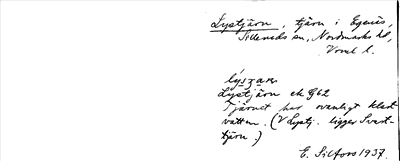 Lystjärn, tjärn i Egenäs,
Silleruds sn, Nordmarks hd,
Vrml l.
Lystjärn ek 962
Tjärnet har ovanligt klart
vatten. (V Lystj. ligger Svart-
tjärn.)
E. Silfors 1937.